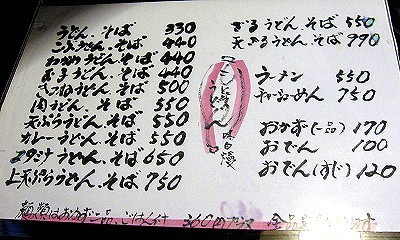 うどん.そば 330
こぶうどん.そば 440
わかめうどん.そば 440
おろうどん.そば 440
きつねうどん.そば 500
肉うどん.そば 550
天ぷらうどん.そば 550
カレーうどん.そば 550
スタミナうどん.そば 650
上天ぷらうどん.そば 750
ざるうどん.そば 550
天ざるうどん.そば 990
ラーメン 550
チャーシューメン 750
おかず(一品) 170
おでん 100
おでん(すじ) 120
麺類はおかず一品、ごはん付 360円プラス